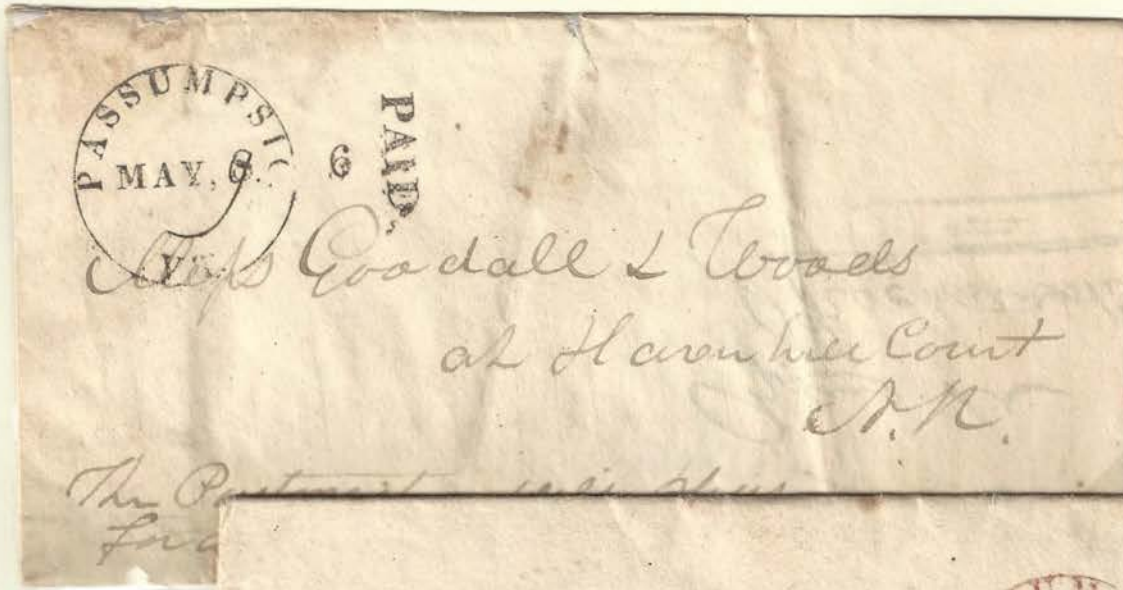 PASSUMPSIC
MAY, 8.
Vt.
6
PAID
Mess Goodall & Woods
at Haverhill Court
N.H.
The Postmaster will please